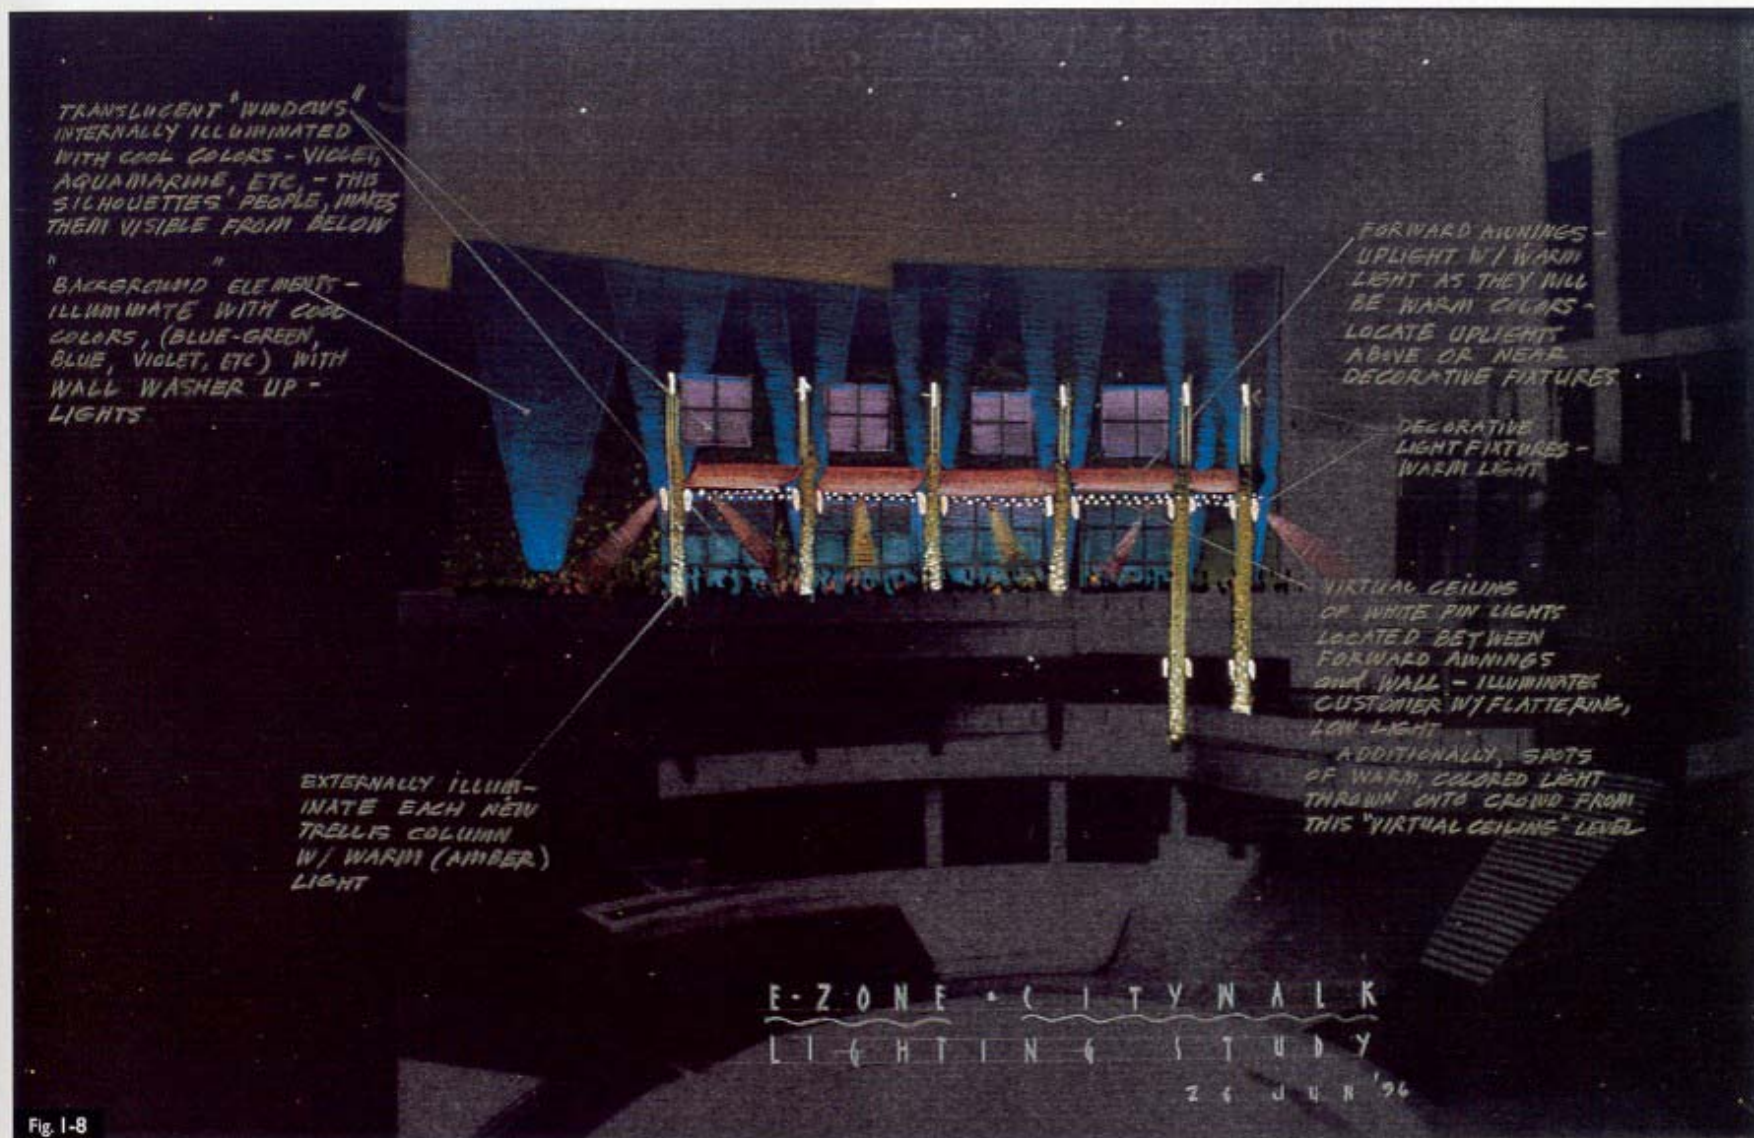 TRANSLUCENT "WINDOWS"
INTERNALLY ILLUMINATED
WITH COOL COLORS - VIOLET,
AQUAMARINE, ETC. - THIS
SILHOUETTES PEOPLE, MAKES
THEM VISIBLE FROM BELOW
"BACKGROUND" ELEMENTS -
ILLUMINATE WITH COOL
COLORS, (BLUE-GREEN,
BLUE, VIOLET, ETC) WITH
WALL WASHER UP-
LIGHTS
EXTERNALLY ILLUM-
INATE EACH NEW
TRELLIS COLUMN
W/ WARM (AMBER)
LIGHT
FORWARD AWNINGS -
UPLIGHT W/ WARM
LIGHT AS THEY WILL
BE WARM COLORS -
LOCATE UPLIGHTS
ABOVE OR NEAR
DECORATIVE FIXTURES
DECORATIVE
LIGHT FIXTURES -
WARM LIGHT
VIRTUAL CEILING
OF WHITE PIN LIGHTS
LOCATED BETWEEN
FORWARD AWNINGS
and WALL - ILLUMINATES
CUSTOMER W/ FLATTERING,
LOW LIGHT
ADDITIONALLY, SPOTS
OF WARM, COLORED LIGHT
THROWN ONTO CROWD FROM
THIS "VIRTUAL CEILING" LEVEL
E-ZONE • CITYWALK
LIGHTING STUDY
26 JUN '96
Fig. 1-8